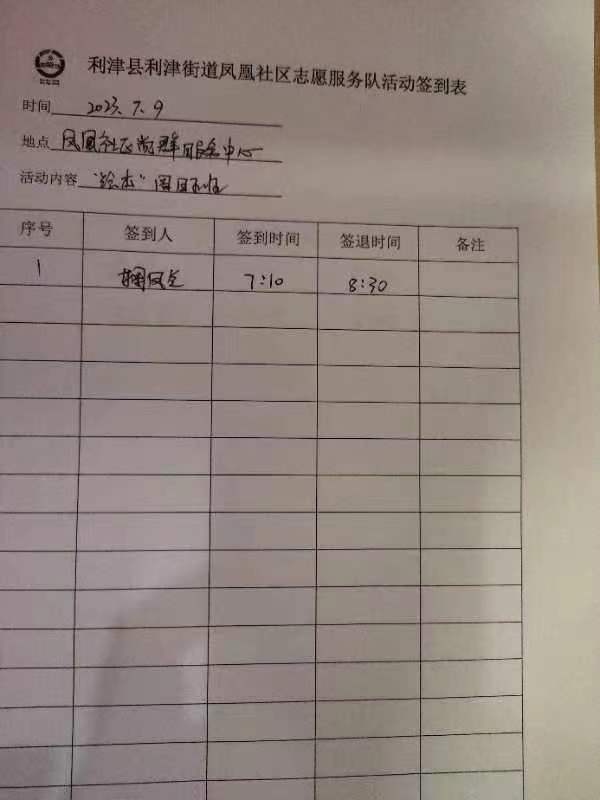 利津县利津街道凤凰社区志愿服务队活动签到表
时间 2023.7.9
地点 凤凰社区党群服务中心
活动内容 "绘本"
序号 签到人 签到时间 签退时间 备注
1 7:10 8:30